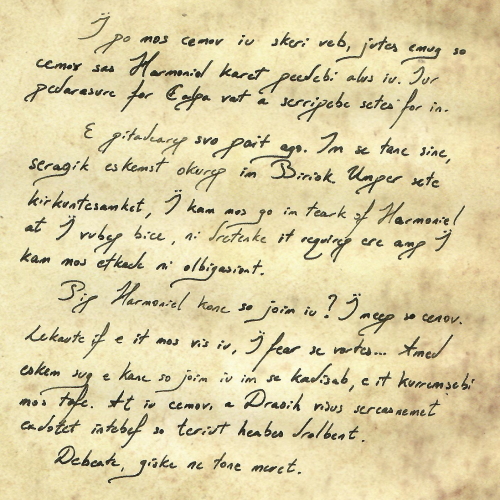 Ï po mos cemov iu skri veb, jutes emug so
cemov sas Harmoniel karet peedebi alus iu. Iur
pedarasure for Calpa vat a serripebe setes for in.
E pitadcareg svo pait ago. Im se tane sine,
seragik eskemst okureg im Biriok. Unper sete
kirkuntesamket, Ï kam mos go in teark of Harmoniel
at Ï vubeg bice, ni sretenke it requireg ere amg Ï
kam mos etkade ni olbigasiont.
Pig Harmoniel kane so joim iu? Ï meeg so cenov.
Lekaute if e it mos vis iu, Ï fear se vortes... Amed
eskem sug e kane so joim iu im se kadisab, e it kurrumsebi
mos tofe. At iu cemov, a Drasih visus sercesnemet
eadotet intebef so teriut heabes srolbent.
Debeate, giske ne tone meret.